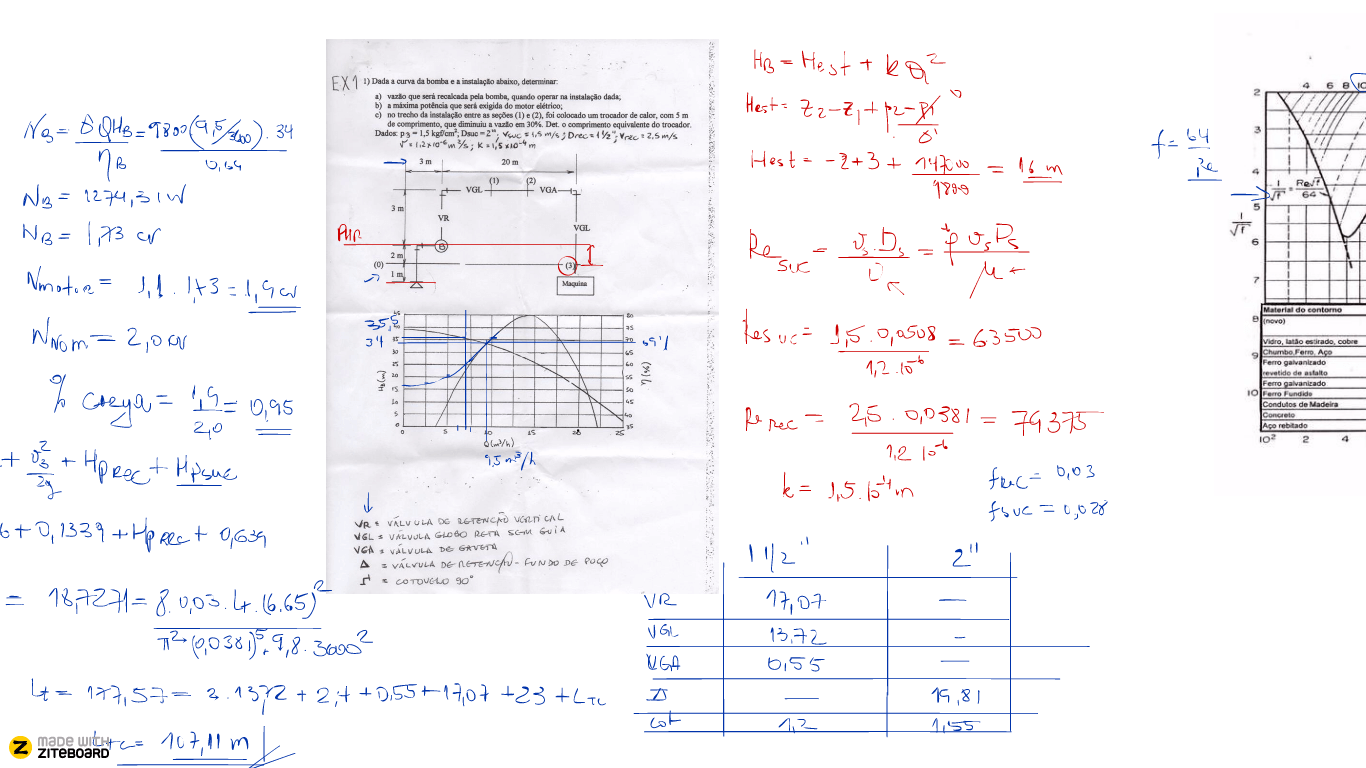 EX1 1) Dada a curva da bomba e a instalação abaixo, determinar:
a) vazão que será recalcada pela bomba, quando operar na instalação dada;
b) a máxima potência que será exigida do motor elétrico;
c) no trecho da instalação entre as seções (1) e (2), foi colocado um trocador de calor, com 5 m
de comprimento, que diminuiu a vazão em 30%. Det. o comprimento equivalente do trocador.
Dados: p3 = 1,5 kgf/cm²; Dsuc = 2"; vsuc = 1,5 m/s; Drec = 1 1/2"; vrec = 2,5 m/s
ν = 1,2x10⁻⁶ m²/s ; K = 1,5x10⁻⁴ m
3 m 20 m
(1) (2)
VGL VGA
3 m
VR
VGL
PHR
B
2 m
(0) (3)
1 m
Maquina
35,5
34
69%
HB (m)
45 40 35 30 25 20 15 10 5 0
80 75 70 65 60 55 50 45 40 35
η (%)
0 5 10 15 20 25
Q(m³/h)
9,5 m³/h
VR = VÁLVULA DE RETENÇÃO VERTICAL
VGL = VÁLVULA GLOBO RETA SEM GUIA
VGA = VÁLVULA DE GAVETA
Δ = VÁLVULA DE RETENÇÃO - FUNDO DE POÇO
= COTOVELO 90°
NB = γQHB = 9800(9,5/3600).34
ηB 0,69
NB = 1274,31 W
NB = 1,73 cv
Nmotor = 1,1 . 1,73 = 1,9 cv
NNom = 2,0 cv
% carga = 1,9 = 0,95
2,0
+ v3² + HpREC + Hpsuc
2g
6 + 0,1339 + HpREC + 0,639
= 18,7271 = 8.0,03.Lt.(6.65)²
π².(0,0381)⁵.9,8.3600²
Lt = 177,57 = 2.13,72 + 2,4 + 0,55 + 17,07 + 23 + LTC
LTC = 107,11 m
MADE WITH
ZITEBOARD
HB = Hest + kQ²
Hest = z2 - z1 + p2 - p1 0
γ
Hest = -2 + 3 + 147000 = 16 m
9800
Resuc = vs.Ds = ρ vs Ds
ν μ
Resuc = 1,5.0,0508 = 63500
1,2.10⁻⁶
Rerec = 2,5 . 0,0381 = 79375
1,2 10⁻⁶
k = 1,5.10⁻⁴ m
frec = 0,03
fsuc = 0,028
1 1/2" 2"
VR 17,07 —
VGL 13,72 -
VGA 0,55 —
Δ — 19,81
Cot 1,2 1,55
f = 64
Re
4 6 8 10
2
3
4
1/√f = Re√f/64
5
1/√f
6
7
8
9
10
Material do contorno
(novo)
Vidro, latão estirado, cobre
Chumbo,Ferro, Aço
Ferro galvanizado
revetido de asfalto
Ferro galvanizado
Ferro Fundido
Condutos de Madeira
Concreto
Aço rebitado
10² 2 4